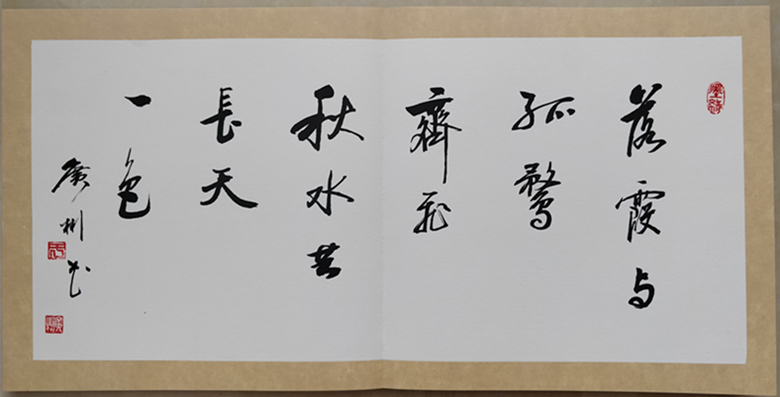 落霞与
孤鹜
齊飛
秋水共
長天
一色
廣彬书